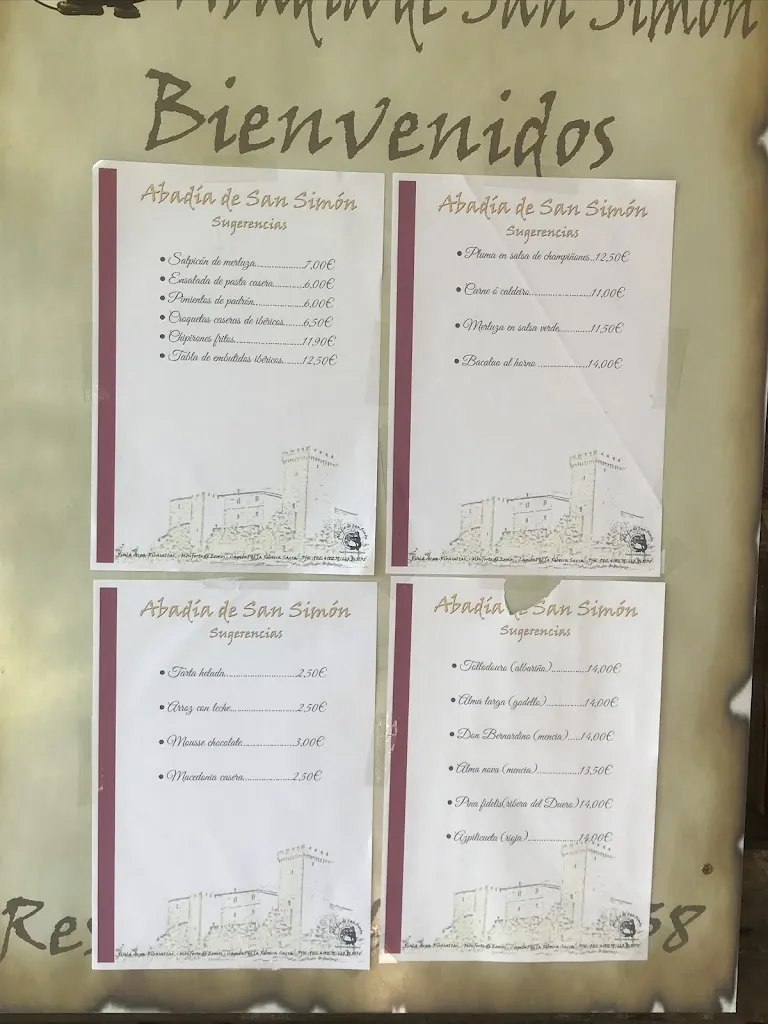 Abadía de San Simón
Bienvenidos
Abadía de San Simón
Sugerencias
• Salpicón de merluza..............7,00€
• Ensalada de pasta casera.........6,00€
• Pimientos de padrón..............6,00€
• Croquetas caseras de ibéricos......6,50€
• Chipirones fritos....................11,90€
• Tabla de embutidos ibéricos......12,50€
Abadía de San Simón
Sugerencias
• Pluma en salsa de champiñones..12,50€
• Carne ó caldeiro..................11,00€
• Merluza en salsa verde.........11,50€
• Bacalao al horno ...............14,00€
Abadía de San Simón
Sugerencias
• Tarta helada.....................2,50€
• Arroz con leche...................2,50€
• Mousse chocolate................3,00€
• Macedonia casera...............2,50€
Abadía San Simón
Sugerencias
• Tollodouro (albariño)...........14,00€
• Alma larga (godello)............14,00€
• Don Bernardino (mencia)....14,00€
• Alma nova (mencia)............13,50€
• Pina fidelis(ribera del Duero)14,00€
• Azpilicueta (rioja)................14,00€
Res
58